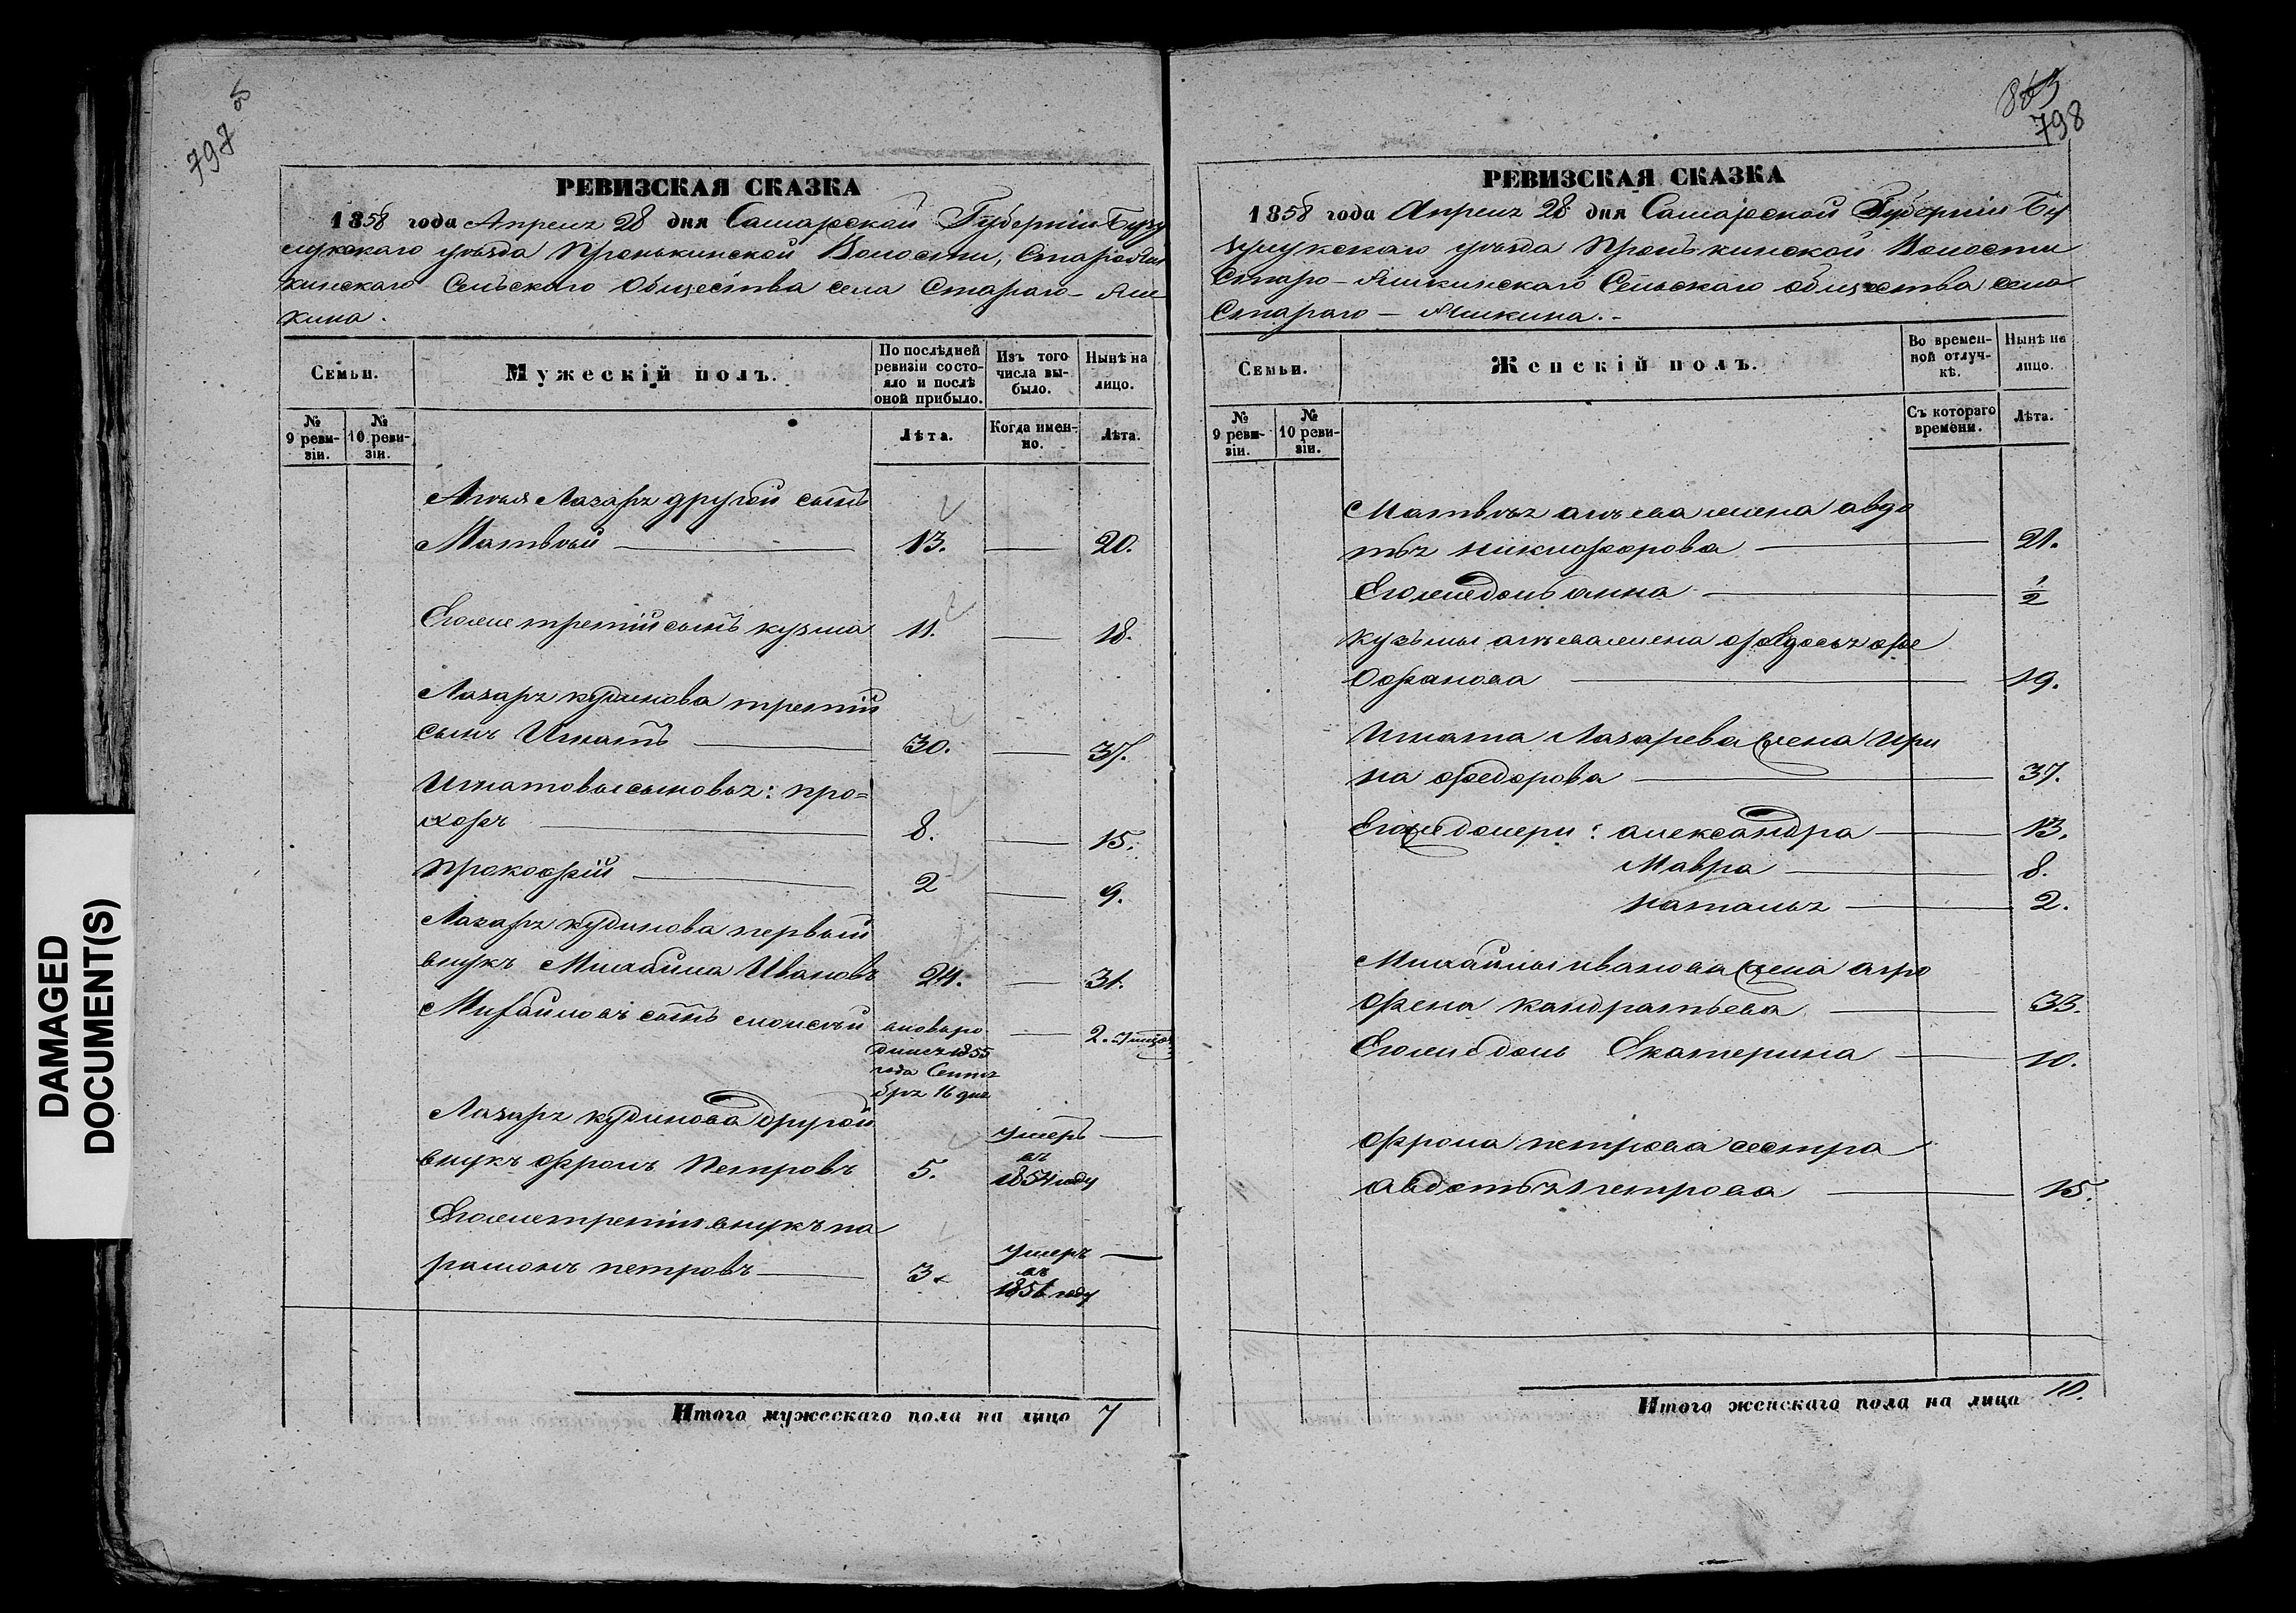 797 об
РЕВИЗСКАЯ СКАЗКА
1858 года Апреля 28 дня Самарской Губернiи Бузу
лукскаго уѣзда Пронькинской Волости, Староаш
кинскаго Сельскаго Общества села Стараго-Аш
кина.
Семьи.
Мужескiй полъ.
По послѣдней ревизiи состояло и послѣ оной прибыло.
Изъ того числа выбыло.
Нынѣ на лицо.
№ 9 ревизiи.
№ 10 ревизiи.
Лѣта.
Когда именно.
Лѣта.
Лазаря другой сынъ
Матвѣй 13. 20.
Егоже третiй сынъ кузма 11. 18.
Лазаря кудинова третiй
сынъ Игнатъ 30. 37.
Игнатовы сыновья: про=
хоръ 8. 15.
прокофiй 2 9.
Лазаря кудинова первый
внукъ Михайла Ивановъ 24. 31.
Михайловъ сынъ вновь ро
дился 1855
года Сентя
бря 16 дня
2.
Лазаря кудинова другой
внукъ фролъ Петровъ 5. умеръ
въ
1854 году
Егоже третiй внукъ па
рамонъ петровъ 3. умеръ
въ
1856 году
Итого мужескаго пола на лицо 7
863
798
РЕВИЗСКАЯ СКАЗКА
1858 года Апреля 28 дня Самарской Губернiи Бу
зулукскаго уѣзда Пронькинской Волости
Старо-Ашкинскаго Сельскаго общества села
Стараго - Ашкина.
Семьи.
Женскiй полъ.
Во временной отлучкѣ.
Нынѣ на лицо.
№ 9 ревизiи.
№ 10 ревизiи.
Съ котораго времени.
Лѣта.
Матвѣя жена авдо
тья никифорова 21.
Егоже дочь анна 1/2
кузьмы жена федосья
19.
Игната Лазарева жена Ири
на федорова 37.
Егоже дочери: александра 13.
Мавра 8.
наталья 2.
Михайлы иванова жена агро
фена кандратьева 33.
Егоже дочь Екатерина 10.
фрола петрова сестра
авдотья петрова 15.
Итого женскаго пола на лицо 10.
DAMAGED
DOCUMENT(S)